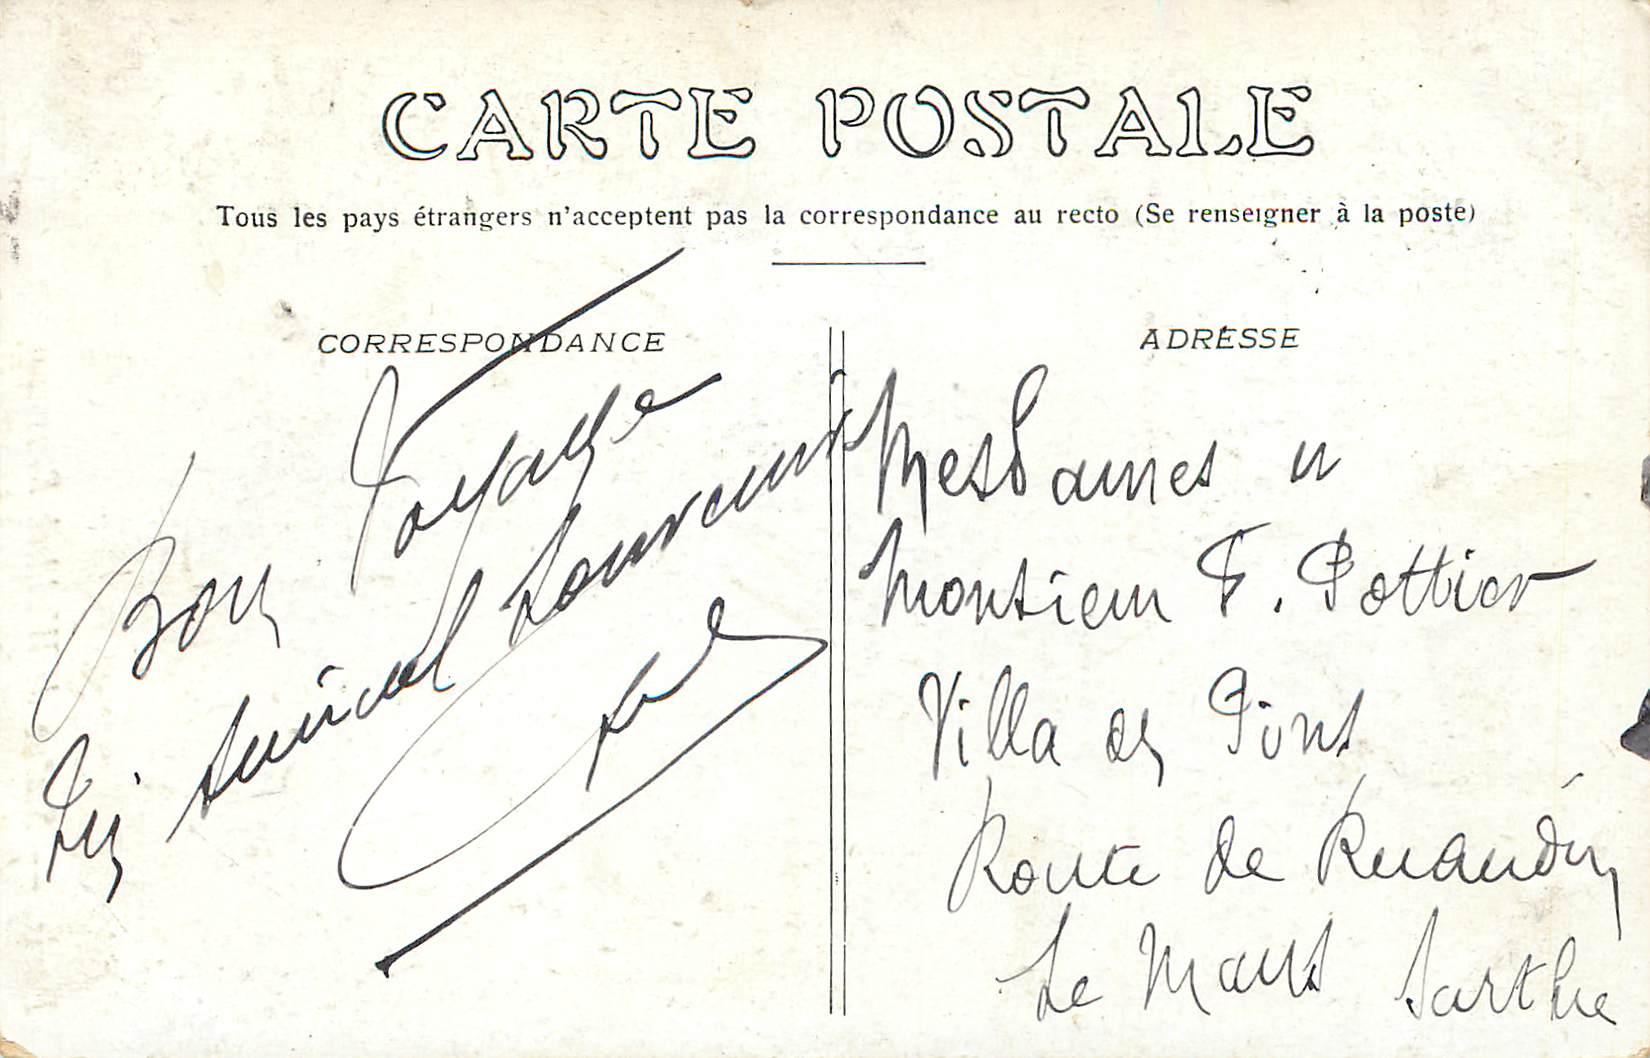 CARTE POSTALE
Tous les pays étrangers n'acceptent pas la correspondance au recto (Se renseigner à la poste)
CORRESPONDANCE
Bon Voyage
amical souvenir
ADRESSE
Mesdames et
Monsieur F. Pottier
Villa des Pins
Route de Ruaudin
Le Mans Sarthe